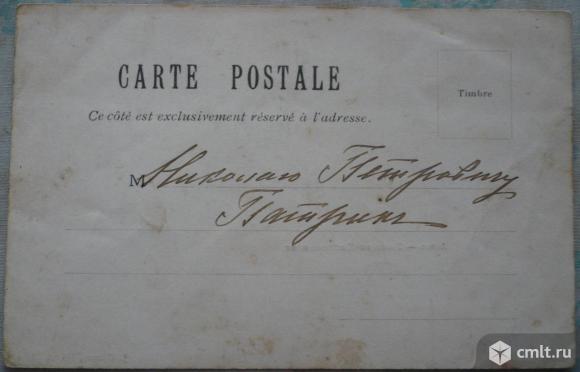 CARTE POSTALE
Timbre
Ce côté est exclusivement réservé à l'adresse.
M Николаю Петровичу
cmlt.ru